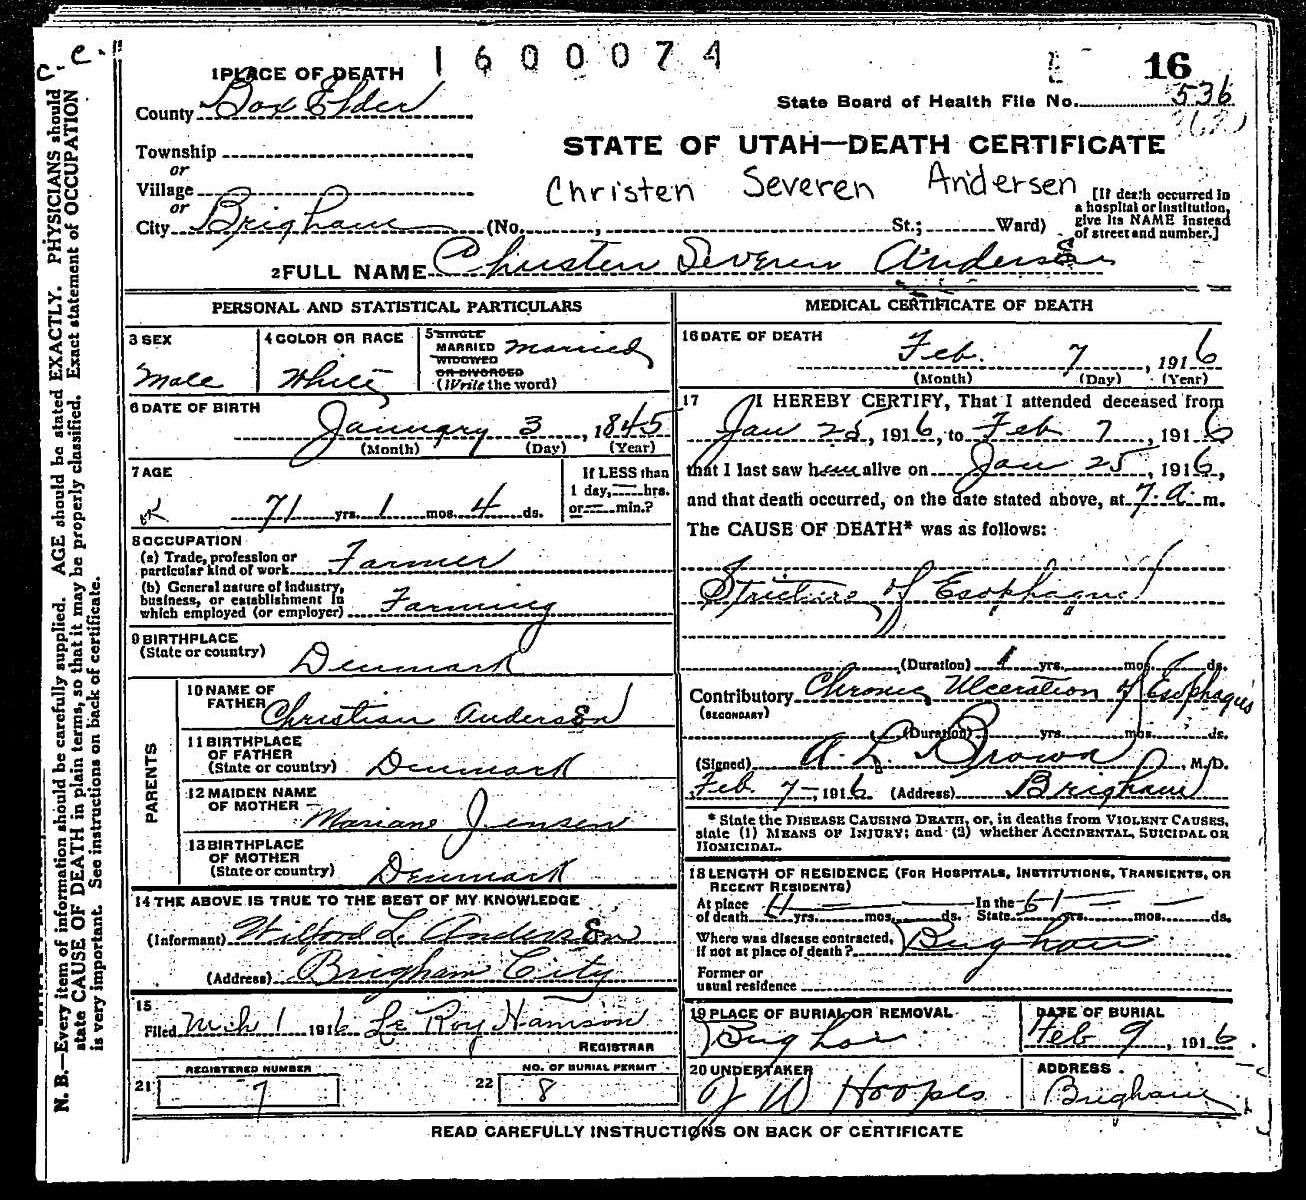 C. C.
1600074
16
1 PLACE OF DEATH
State Board of Health File No. 536
County Box Elder
STATE OF UTAH—DEATH CERTIFICATE
Township
or
Christen Severen Andersen
Village
or
[If death occurred in a hospital or institution, give its NAME instead of street and number.]
City Brigham (No. , St.; Ward)
2 FULL NAME Christen Severen Andersen
PERSONAL AND STATISTICAL PARTICULARS
3 SEX Male
4 COLOR OR RACE White
5 SINGLE MARRIED WIDOWED OR DIVORCED (Write the word) Married
6 DATE OF BIRTH
January 3, 1845
(Month) (Day) (Year)
7 AGE
71 yrs. 1 mos. 4 ds.
If LESS than 1 day, — hrs. or — min.?
8 OCCUPATION
(a) Trade, profession or particular kind of work Farmer
(b) General nature of industry, business, or establishment in which employed (or employer) Farming
9 BIRTHPLACE
(State or country) Denmark
PARENTS
10 NAME OF FATHER Christian Andersen
11 BIRTHPLACE OF FATHER
(State or country) Denmark
12 MAIDEN NAME OF MOTHER Mariane Jensen
13 BIRTHPLACE OF MOTHER
(State or country) Denmark
14 THE ABOVE IS TRUE TO THE BEST OF MY KNOWLEDGE
(Informant) Wilford L. Andersen
(Address) Brigham City
15
Filed Mch 1 1916 Le Roy Harrison
REGISTRAR
REGISTERED NUMBER
21 7
NO. OF BURIAL PERMIT
22 8
MEDICAL CERTIFICATE OF DEATH
16 DATE OF DEATH
Feb. 7, 1916
(Month) (Day) (Year)
17 I HEREBY CERTIFY, That I attended deceased from
Jan 25, 1916, to Feb 7, 1916
that I last saw him alive on Jan 25, 1916,
and that death occurred, on the date stated above, at 7. a. m.
The CAUSE OF DEATH* was as follows:
Stricture of Esophagus
(Duration) 1 yrs. mos. ds.
Contributory Chronic Ulceration of Esophagus
(SECONDARY)
(Duration) yrs. mos. ds.
(Signed) A. L. Brown, M.D.
Feb. 7—, 1916 (Address) Brigham
* State the DISEASE CAUSING DEATH, or, in deaths from VIOLENT CAUSES,
state (1) MEANS OF INJURY; and (2) whether ACCIDENTAL, SUICIDAL OR
HOMICIDAL.
18 LENGTH OF RESIDENCE (FOR HOSPITALS, INSTITUTIONS, TRANSIENTS, OR
RECENT RESIDENTS)
At place of death yrs. — mos. — ds. In the State 61 yrs. — mos. — ds.
Where was disease contracted, if not at place of death? Brigham
Former or usual residence
19 PLACE OF BURIAL OR REMOVAL
Brigham
DATE OF BURIAL
Feb 9, 1916
20 UNDERTAKER
J W Hoopes
ADDRESS
Brigham
READ CAREFULLY INSTRUCTIONS ON BACK OF CERTIFICATE
N. B.—Every item of information should be carefully supplied. AGE should be stated EXACTLY. PHYSICIANS should
state CAUSE OF DEATH in plain terms, so that it may be properly classified. Exact statement of OCCUPATION
is very important. See instructions on back of certificate.